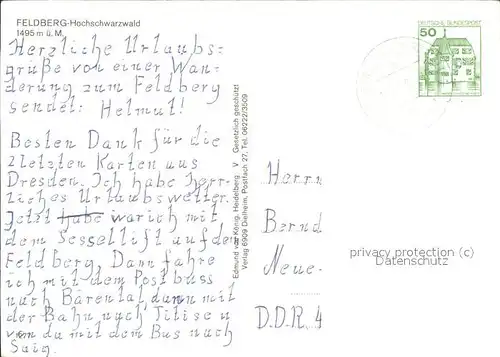 FELDBERG-Hochschwarzwald
1495 m ü.M.
Herzliche Urlaubs=
grüße von einer Wan=
derung zum Feldberg
sendet: Helmut!
Besten Dank für die
2 letzten Karten aus
Dresden. Ich habe herr=
liches Urlaubswetter.
Jetzt habe war ich mit
dem Sessellift auf den
Feldberg. Dann fahre
ich mit dem Postbuss
nach Bärental, dann mit
der Bahn nach Titisee
von da mit dem Bus nach
Saig.
Edmund von König, Heidelberg Gesetzlich geschützt
Verlag 6909 Dielheim, Postfach 27, Tel. 06222/3509
DEUTSCHE BUNDESPOST
50
Herrn
Bernd
Neue
D.D.R. 4
privacy protection (c)
Datenschutz